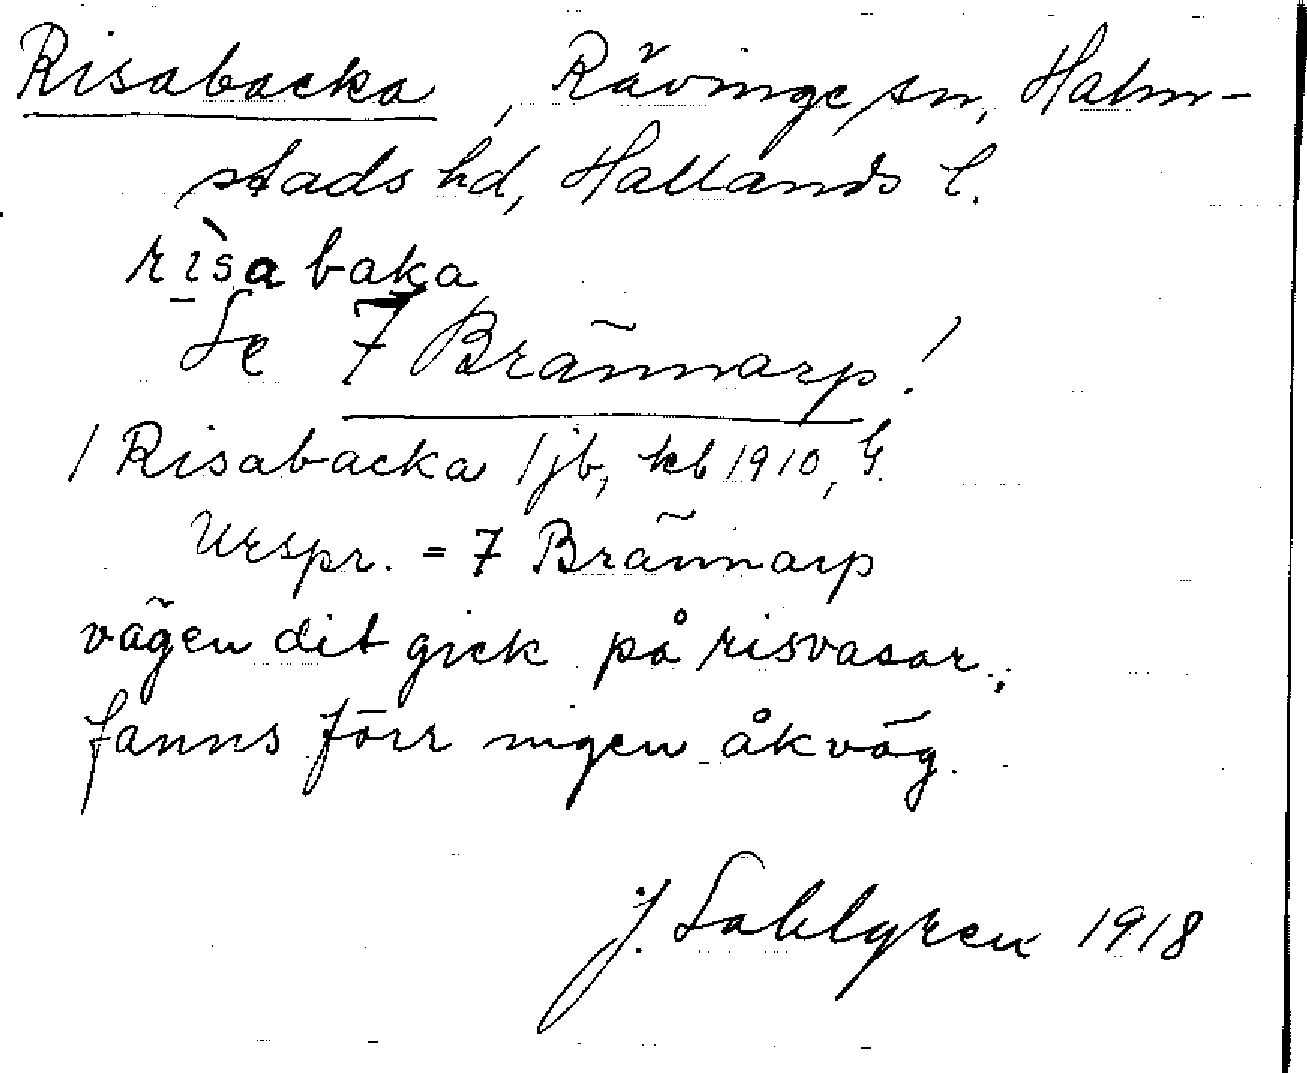 Risabacka, Rävinge sn, Halm-
stads hd, Hallands l.
rìsabaka
Se 7 Brännarp!
1 Risabacka 1 jb, kb 1910, G.
Urspr. = 7 Brännarp
vägen dit gick på risvasar,
fanns förr ingen åkväg.
J. Sahlgren 1918